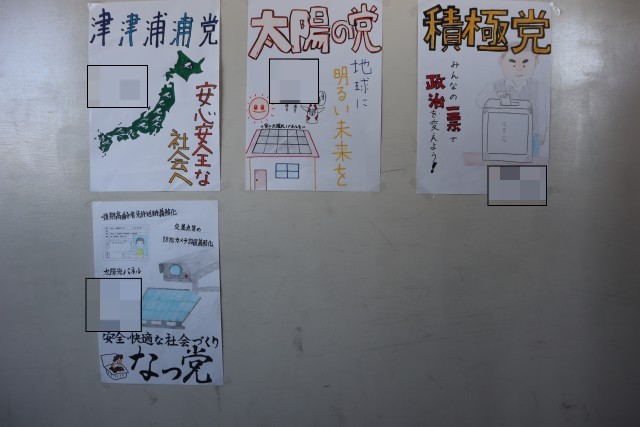 津津浦浦党
安心安全な
社会へ
太陽の党
地球に
明るい未来を
積極党
みんなの一票で
政治を変えよう!
後期高齢者免許返納義務化
交差点等の
防犯カメラ設置義務化
太陽光パネル
安全・快適な社会づくり
なっ党